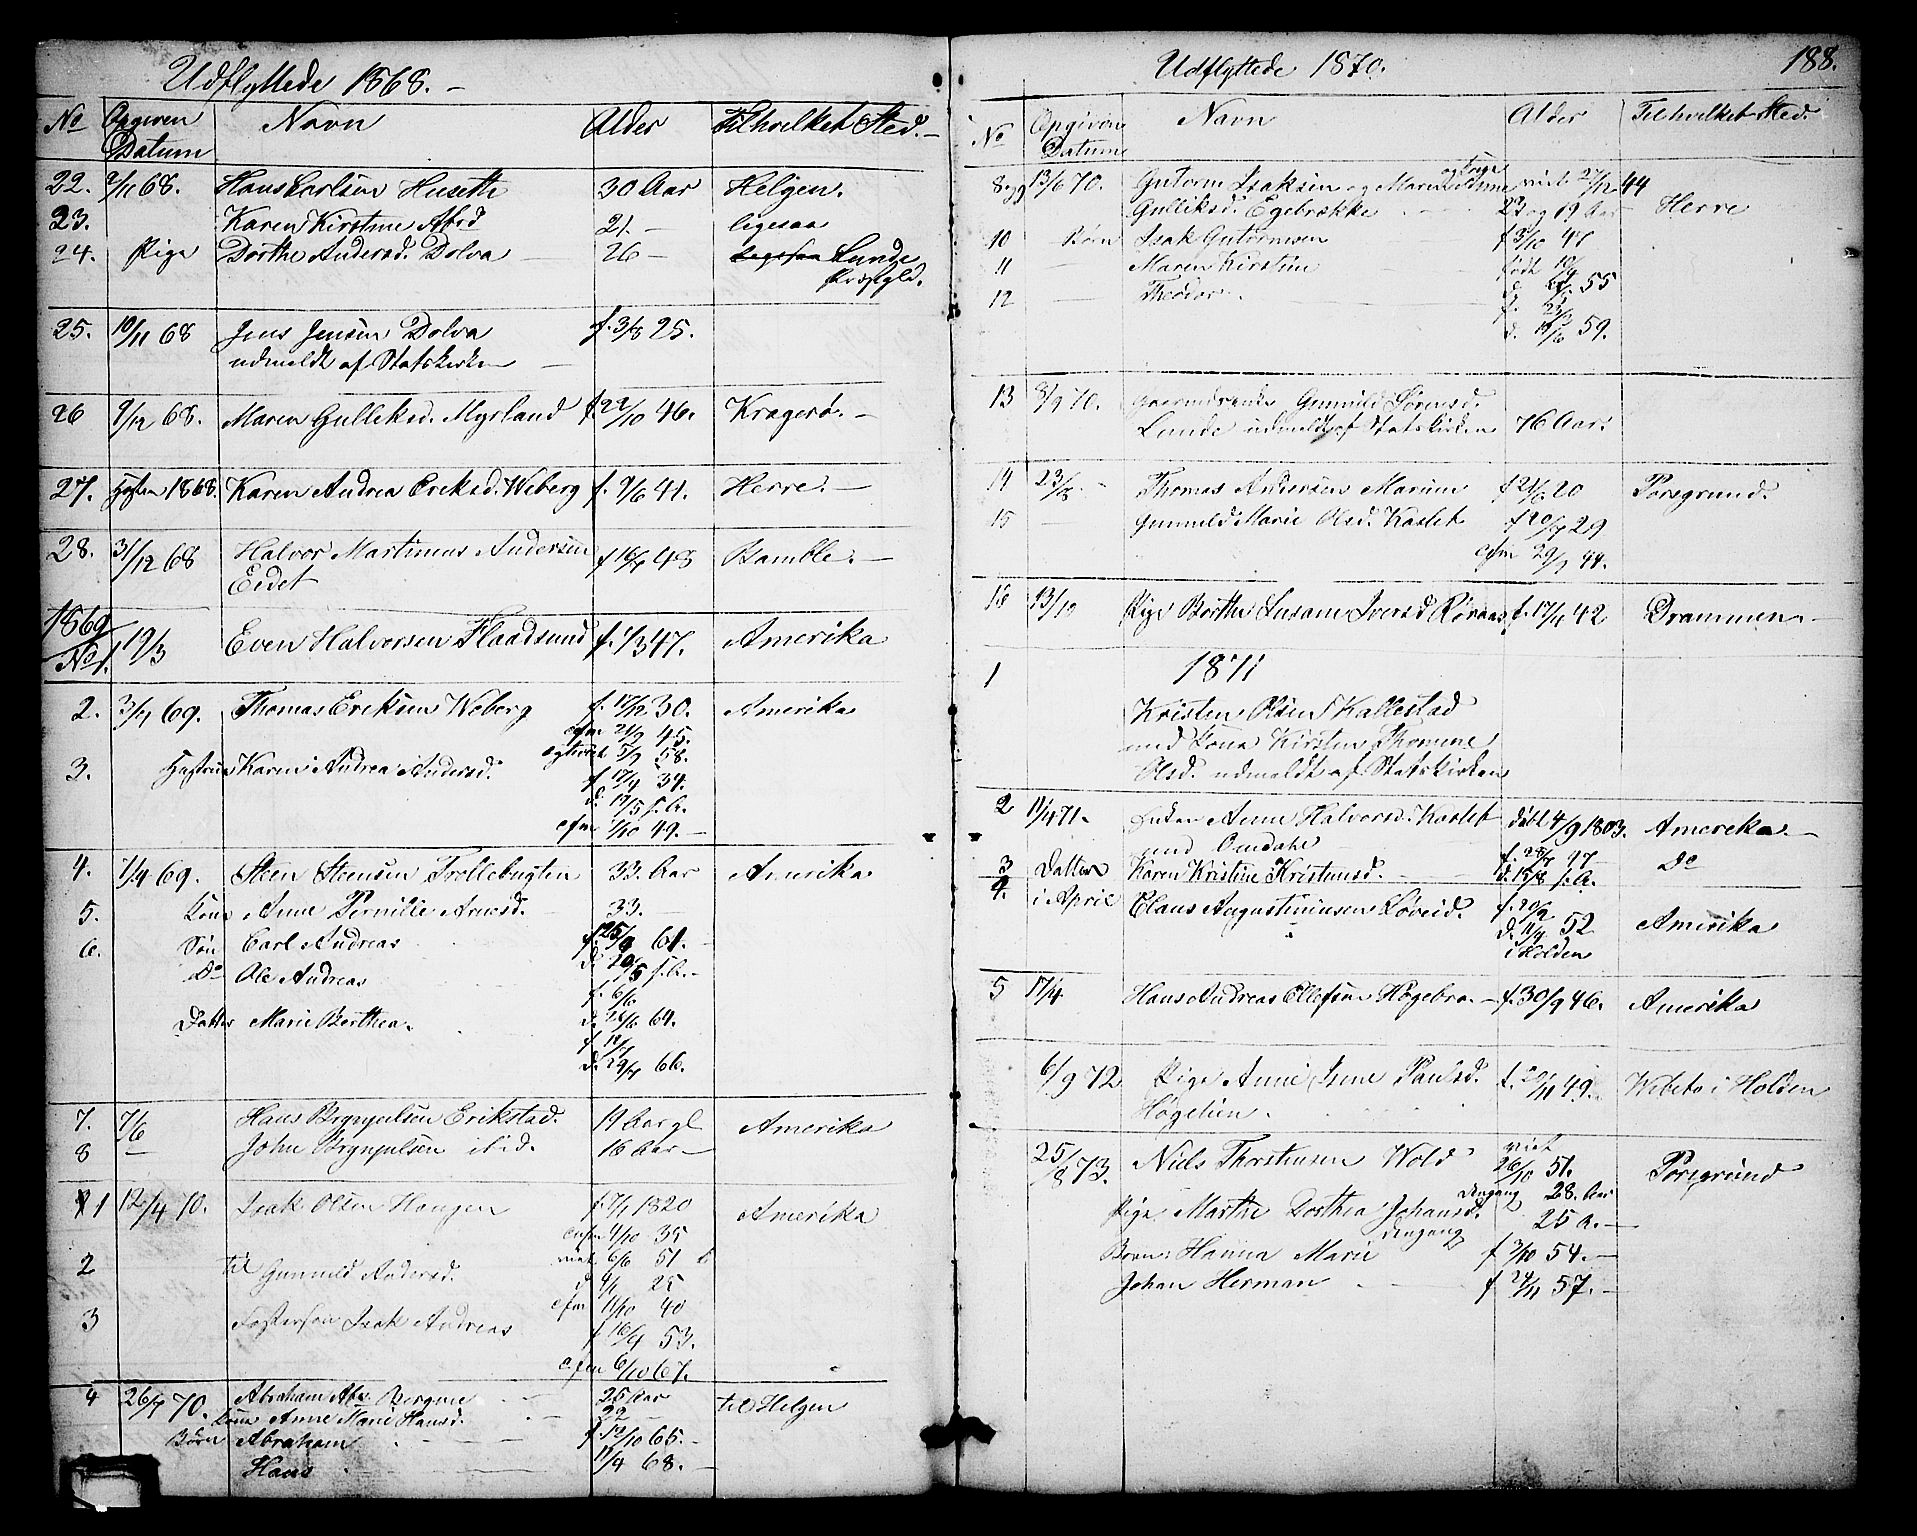 Udflyttede 1868. -
No Opgiven Datum Navn Alder Til hvilket Sted. -
22. 2/11 68. Hans Carlsen Huseth 30 Aar Helgen.
23. Karen Kirstine Abrd 21. - ligesaa
24. Pige Dorthe Andersd. Dolva 26 - Lunde
Præstgld.
25. 10/11 68 Jens Jensen Dolva f. 3/8 25.
udmeldt af Statskirken -
26 9/12 68. Maren Gulleksd. Myrland f. 22/10 46. Kragerø. -
27. Høsten 1868. Karen Andrea Eriksd. Weberg f. 9/6 41. Herre. -
28. 31/12 68 Halvor Martinus Andersen f 16/7 48 Bamble. -
Eidet
1869
No 1. 19/3 Even Halvorsen Flaadsund f. 1/3 47. Amerika
2. 3/4 69. Thomas Eriksen Weberg f. 17/12 30. Amerika
cfm 21/9 45.
egteviet 5/9 58.
3. Hustru Karen Andrea Andersd. f 17/4 34.
d. 19/5 s. A.
cfm 1/10 49. -
4. 7/4 69. Steen Steensen Trollebugten 33. Aar Amerika
5. Kone Anne Pernille Arnesd. 33. -
6. Søn Carl Andreas f. 25/9 61. -
Do Ole Andreas d. 20/5 s. A. -
f. 6/6
Datter Marie Berthea. d. 26/6 64.
f. 12/7
d. 29/7 66.
7. 7/6 Hans Brynjulsen Erikstad. 19 Aar gl Amerika
8 - John Brynjulsen ibid. 16 Aar -
1 12/4 70. Isak Olsen Haugen f. 7/1 1820 Amerika
cnfm 4/10 35
viet 6/6 51
2 til Gunnild Andersd. d 9/1 25
cfm 11/10 40
3 Fostersøn Isak Andreas f. 16/4 53.
cfm 6/10 67.
4 26/4 70. Abraham Abr. Bergene 25 Aar til Helgen
Kone Anne Marie Hansd. 22 -
Børn Abraham f. 12/10 65. -
Hans 11/4 68. -
Udflyttede 1870. 188.
No Opgivne Datum Navn Alder Til hvilket Sted.
8 og 9 13/6 70. Gutorm Isaksen og Maren viet 27/12 44
Gulliksd. Egebrække 23 og 19 Aar Herre
10 Børn Isak Gutormsen f 3/10 47
11 - Maren Kirstine født 10/4
12 - Theodor. d. 55
f. 23/3
d. 19/6 59.
13 8/9 70. Gunnild Sørensd.
Lunde udmeldt af Statskirken 76 Aar.
14 23/8 - Thomas Andersen Marum f 21/6 20 Porsgrund.
15 - Gunnild Marie Olsd. Kaslet f 20/7 29
cfm 29/9 44.
16 13/10 Pige Berthe Susane Iversd Røraas f. 17/4 42 Drammen. -
1 1871
Kristen Olsen Kallestad
med Kone Kirsten Thomine
Olsd. udmeldt af Statskirken
2 11/4 71. Enken Anne Halvorsd. Kaslet døbt 4/9 1803. Amerika -
und Omdahl
3 Datter Karen Kristine Kristensd. - f. 28/7 47 Do
d. 15/8 s. A.
4. i April Claus Augustinusen Løveid. f. 20/2
d. 11/4 52 Amerika
i Holden
5 17/4. Hans Andreas Ellefsen Høgebro - f. 30/9 46. Amerika
6/9 72 Pige Anne Lene Paulsd. f. 20/11 49. Wibeto i Holden
Høgelien.
25/8 73. Niels Thorstensen Wold viet
26/10 51. Porsgrund
dengang 28. Aar
Pige Marthe Dorthea Johansd. 25 A. -
dengang
Børn: Hanna Marie f 3/10 54. -
Johan Herman f 24/11 57. -